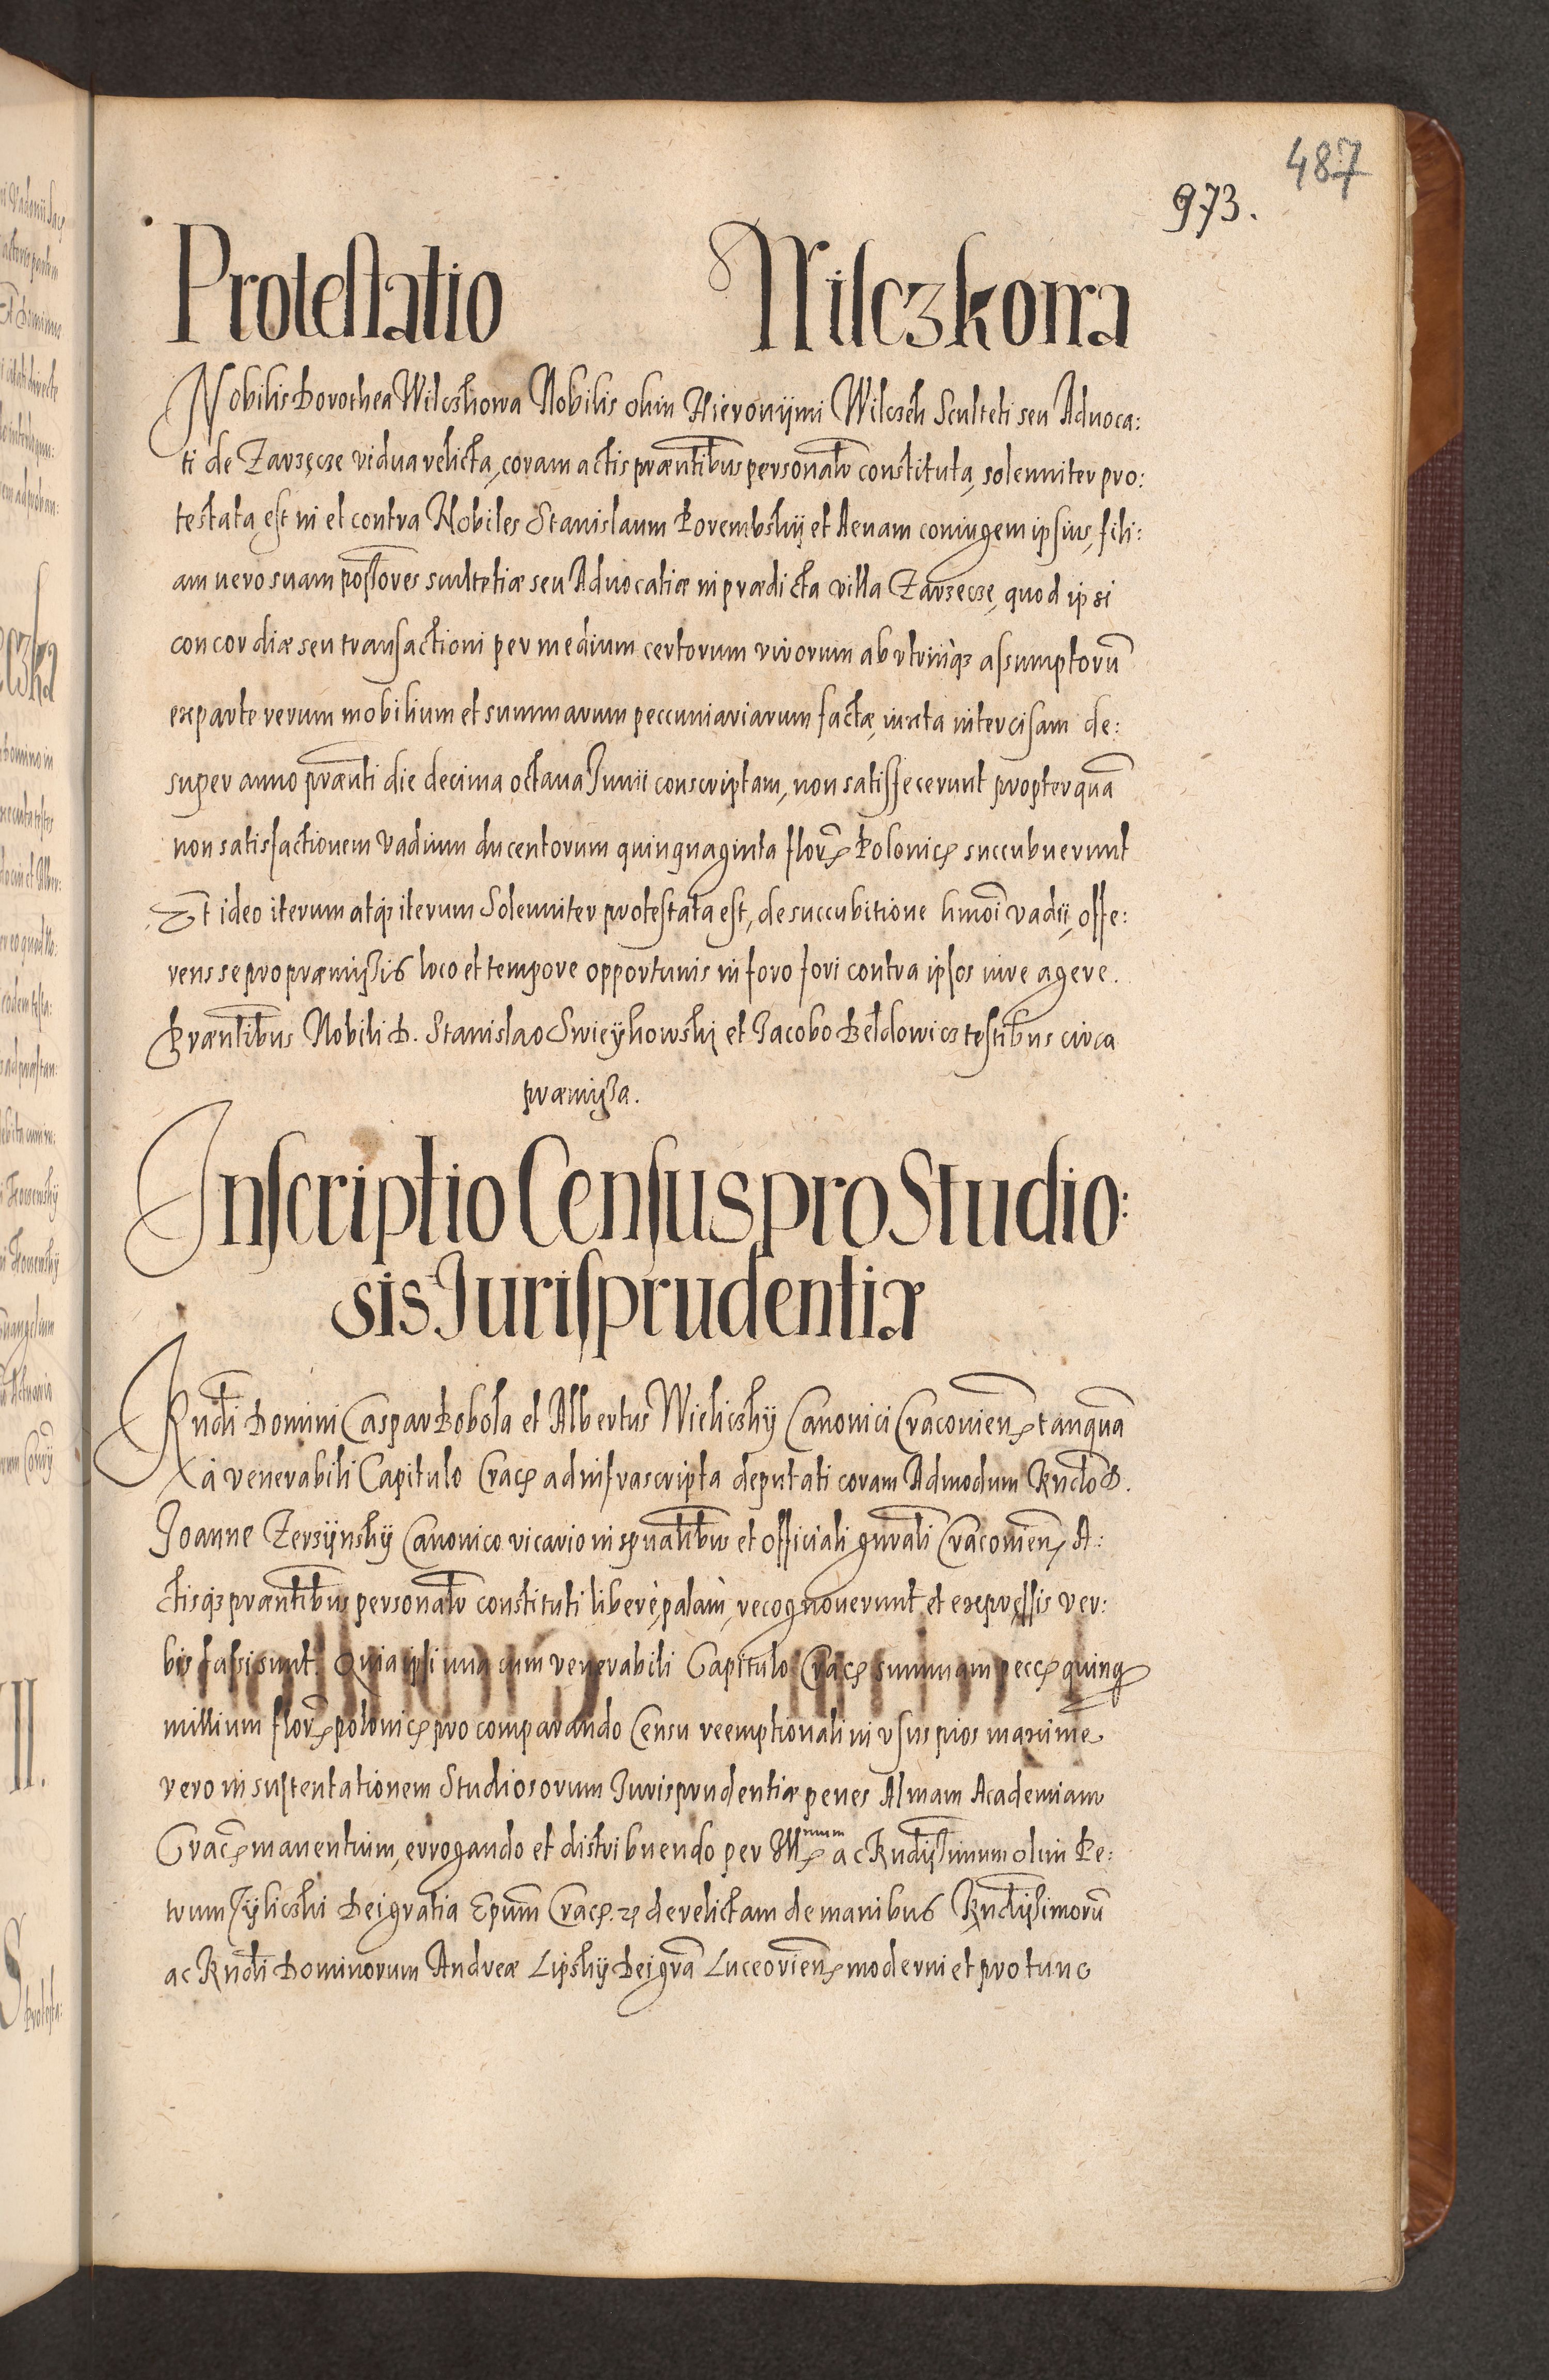 487
973.
Protestatio Wilczkowa
Nobilis Dorothea Wilczkowa Nobilis olim Hieronijmi Wilczek Sculteti seu Aduoca:
ti de Zarzęcze vidua relicta, coram actis praentibus personalr constituta, solenniter pro:
testata est in et contra Nobiles Stanislaum Porembskij et Annam coniugem ipsius, fili:
am uero suam possores scultetiæ seu Aduocatiæ in prædicta villa Zarzecze, quod ipsi
concordiæ seu transactioni per medium certorum virorum ab vtrinq3 assumptorū
ex parte rerum mobilium et summarum peccuniariarum factæ, iuxta intercisam de:
super anno praenti die decima octaua Junii conscriptam, non satisfecerunt propter quā
non satisfactionem vadium ducentorum quinquaginta flor. Polonic. succubuerunt
Et ideo iterum atq3 iterum Solenniter protestata est, de succubitione hmoi vadii, offe:
rens se pro præmissis loco et tempore opportunis in foro fori contra ipsos iure agere.
Praentibus Nobili D. Stanislao Swieykowski et Jacobo Beldowicz testibus circa
præmissa.
Inscriptio Census pro Studio:
sis Jurisprudentiæ
Rndi Domini Caspar Bobola et Albertus Wieliczkij Canonici Cracovien. tanquā
à venerabili Capitulo Crac. ad infrascripta deputati coram Admodum Rndo D.
Joanne Zerzijnskij Canonico vicario in spualibus et officiali gnrali Cracovien. A:
ctisq3 praentibus personalr constituti liberè, palam, recognouerunt et expressis ver:
bis fassi sunt. Quia ipsi una cum venerabili Capitulo Crac. summam pecc. quinq.
millium flor. polonic. pro comparando Censu reemptionali in vsus pios maxime
vero in sustentationem Studiosorum Jurisprudentiæ penes Almam Academiam
Crac. manentium, errogando et distribuendo per Illmum ac Rndissimum olim Pe:
trum Tyliczki Dei gratia Epum Crac. derelictam de manibus Rndissimorū
ac Rndi Dominorum Andreæ Lipskij Dei gra Luceorien. moderni et pro tunc